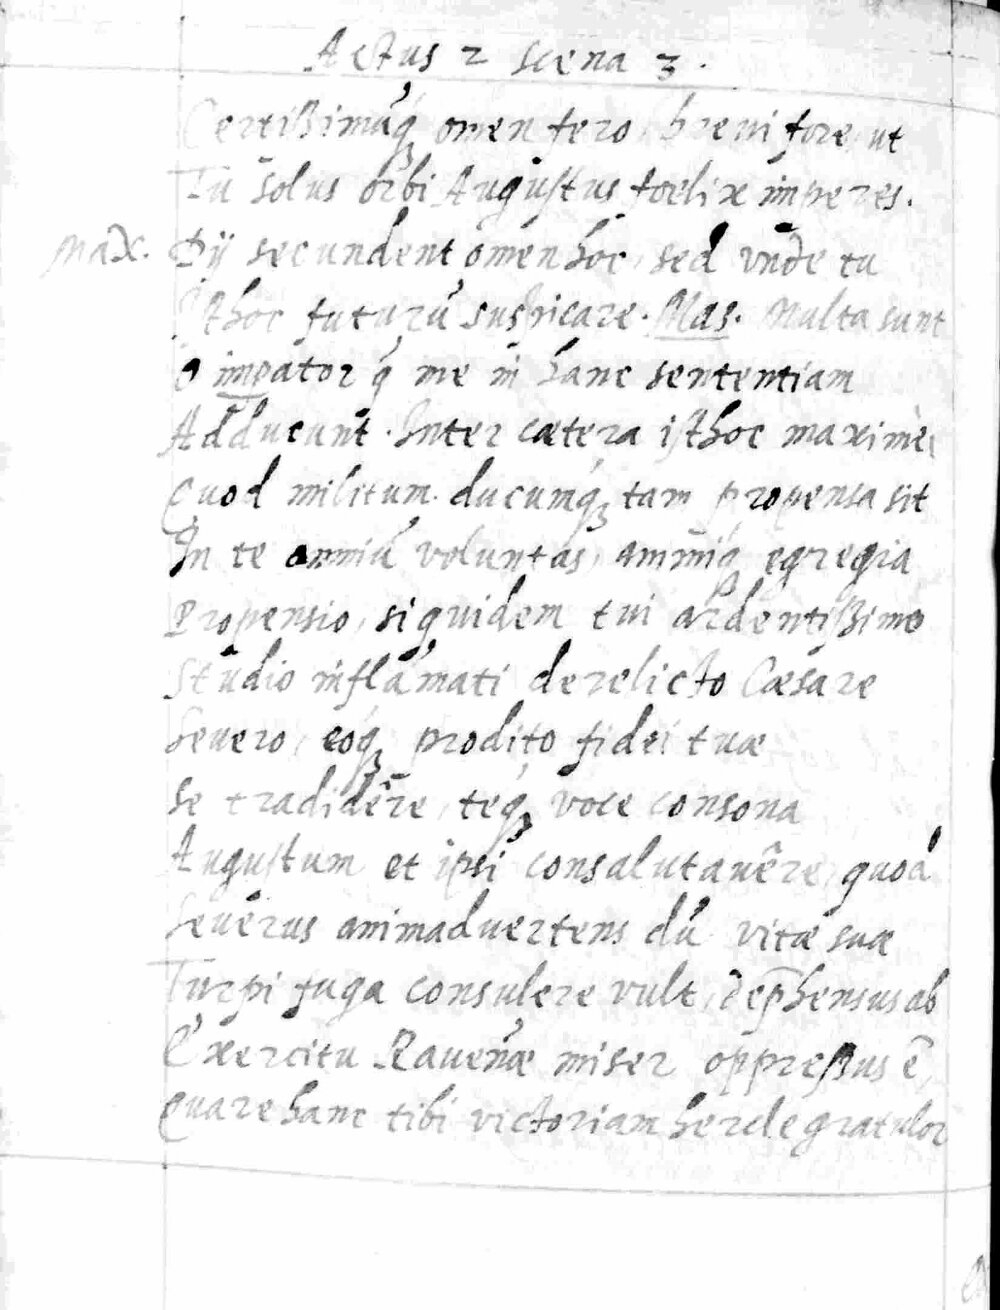 Actus 2 Scena 3.
Certißimúq; omen fero, breui fore, ut
Tu solus orbi Augustus foelix imperes.
Max. Dÿ secundent omen hoc, sed vnde tu
Isthoc futurū suspicare. Mas. Multa sunt
O impātor q̄ me in hanc sententiam
Adducunt. Inter cætera isthoc maximè,
Quod militum ducumq́; tam propensa sit
In te omniū voluntas, animiq́; egregia
Propensio, siquidem tui ardentißimo
Studio inflāmati derelicto Cæsare
Seuero, eoq́; prodito fidei tuæ
Se tradidêre, teq́; voce consona
Augustum et ipsi consalutauêre, quod
Seuerus animaduertens dū vitæ suæ
Turpi fuga consulere vult, dep̄hensus ab
Exercitu Rauen̄æ miser oppreßus ē,
Quare hanc tibi victoriam hercle gratulor